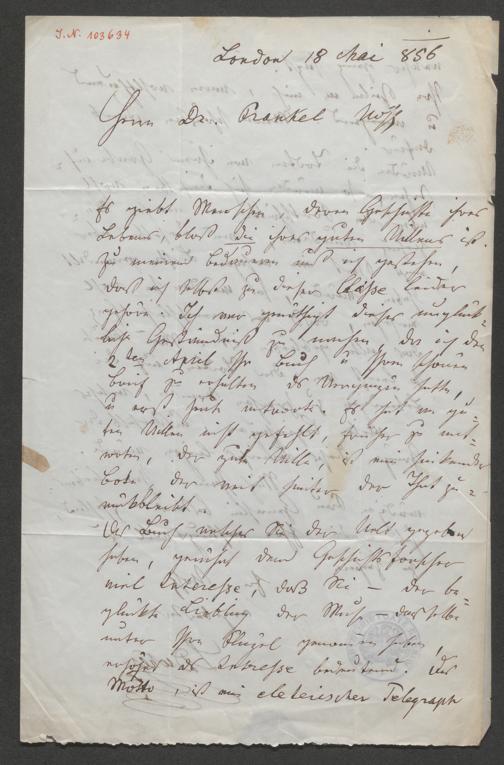 J. N. 103634
London 18 Mai 856
Herrn Dr. Frankel
Es giebt Menschen deren Geschichte ihres
Lebens, bloß die ihres guten Willens ist.
Zu meinem Bedauern muß ich gestehen,
daß ich selbst zu dieser Classe leider
gehöre. Ich war genöthigt dieses unglück-
liche Geständniß zu machen, da ich den
2ten April Ihr Buch u Ihren
Brief zu erhalten das Vergnügen hatte,
u erst heute antworte. Es hat an gu-
ten Willen nicht gefehlt, früher zu ant-
worten, der gute Wille, ist ein hinkender
Bote, der weit hinter der That zu-
rückbleibt.
Das Buch welches Sie der Welt gegeben
haben, gewährt dem Geschichtsforscher
viel Interesse, daß Sie – der be-
glückte Liebling der Muse – dasselbe
unter Ihre Flügel genommen haben,
erhöht das Interesse bedeutend. Das
Motto, ist ein eleterischer Telegraph